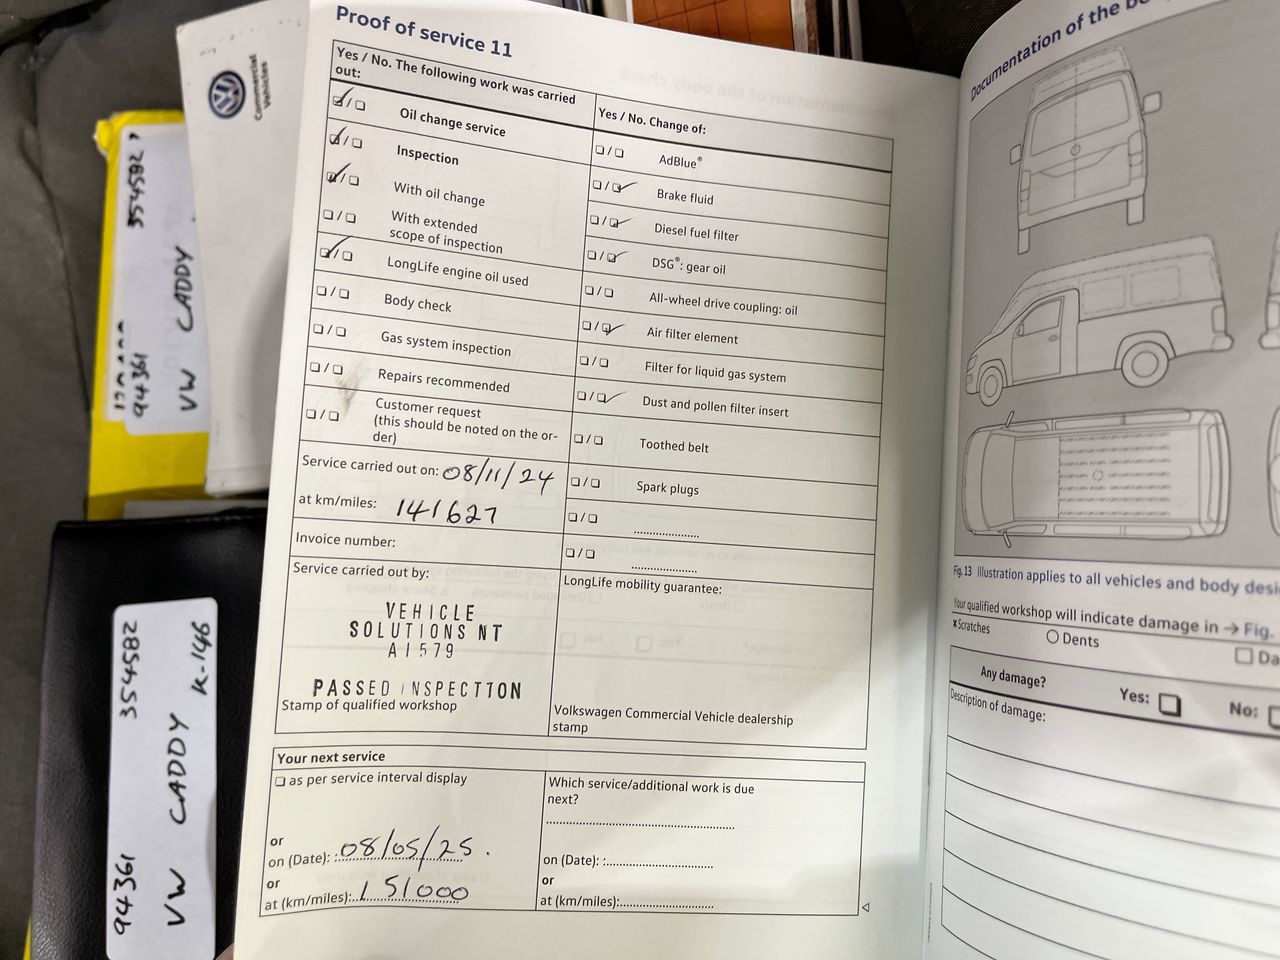 Proof of service 11
Yes / No. The following work was carried
out:
Oil change service
Inspection
With oil change
With extended
scope of inspection
LongLife engine oil used
Body check
Gas system inspection
Repairs recommended
Customer request
(this should be noted on the or-
der)
Service carried out on: 08/11/24
at km/miles: 141627
Invoice number:
Service carried out by:
VEHICLE
SOLUTIONS NT
AI579
PASSED INSPECTION
Stamp of qualified workshop
Yes / No. Change of:
AdBlue®
Brake fluid
Diesel fuel filter
DSG®: gear oil
All-wheel drive coupling: oil
Air filter element
Filter for liquid gas system
Dust and pollen filter insert
Toothed belt
Spark plugs
LongLife mobility guarantee:
Volkswagen Commercial Vehicle dealership
stamp
Your next service
as per service interval display
or
on (Date): 08/05/25.
or
at (km/miles): 151000
Which service/additional work is due
next?
on (Date):
or
at (km/miles):
Documentation of the
Fig. 13 Illustration applies to all vehicles and body desi
Your qualified workshop will indicate damage in → Fig.
x Scratches
Dents
Da
Any damage?
Yes:
No:
Description of damage:
Commercial
Vehicles
354582
94361
VW CADDY
94361 354582
VW CADDY K-146